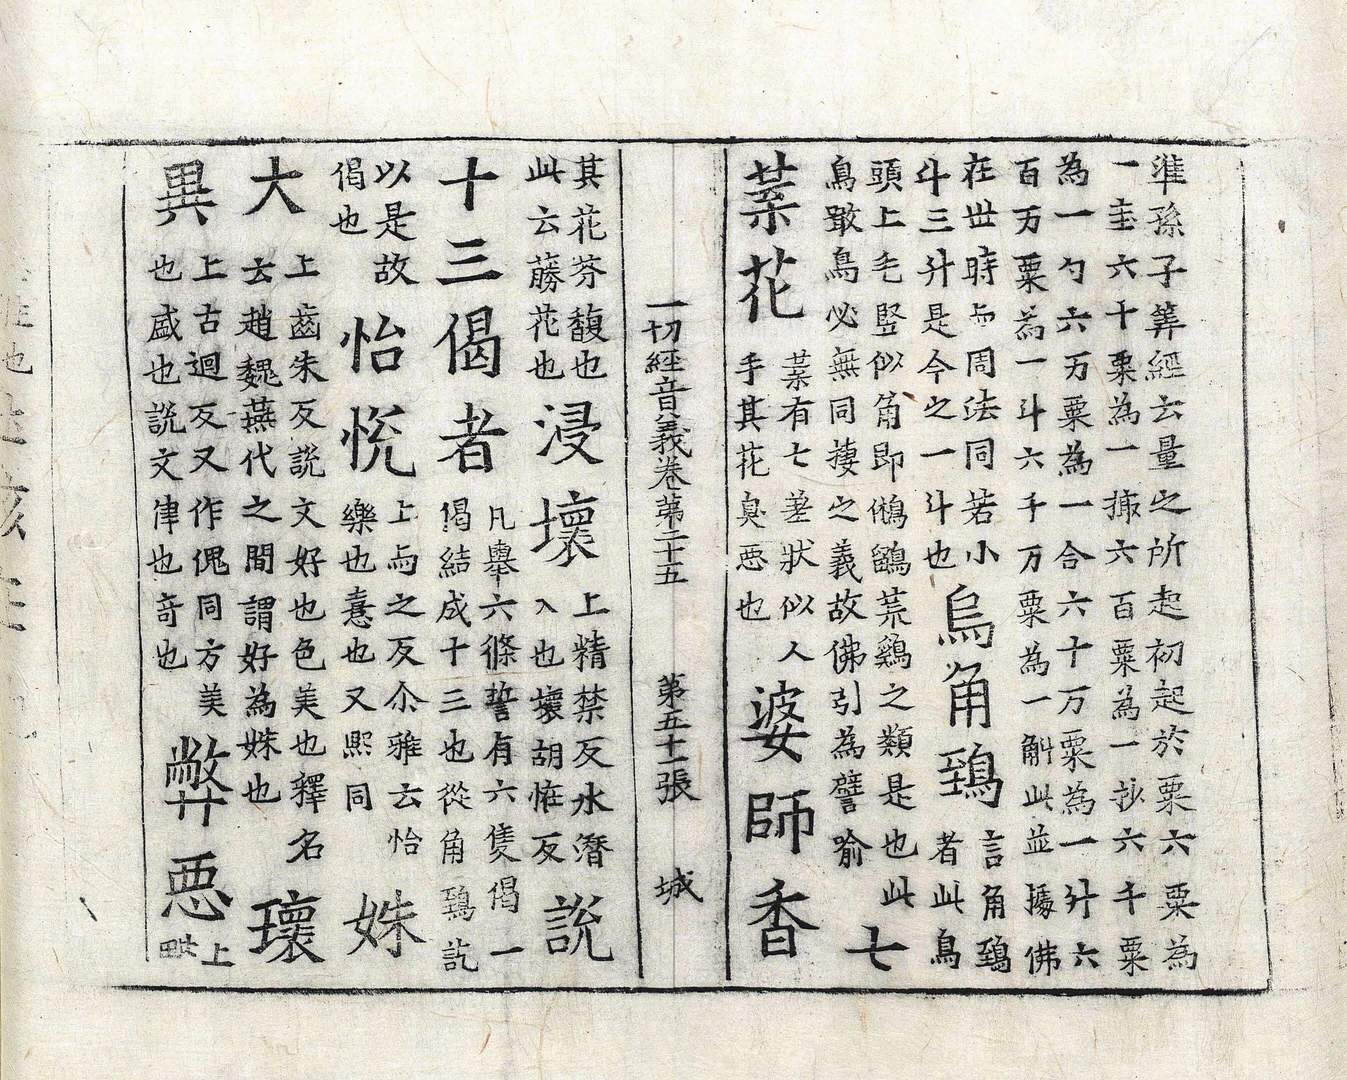 準孫子筭經云量之所起初起於粟六粟為
一圭六十粟為一撮六百粟為一抄六千粟
為一勺六万粟為一合六十万粟為一升六
百万粟為一斗六千万粟為一斛此並據佛
在丗時与周法同若小
斗三升是今之一斗也
烏角鵄
言角鵄
者此鳥
頭上毛竪似角即鵂鶹荒鷄之類是也此
鳥敢鳥必無同捿之義故佛引為譬喻
七
葉花
葉有七差狀似人
手其花臭惡也
婆師香
一切經音義卷第二十五 第五十一張 城
其花芬馥也
此云蕂花也
浸壞
上精禁反水潛
入也壞胡恠反
說
十三偈者
凡舉六條誓有六隻偈一
偈結成十三也從角鵄訖
以是故
偈也
怡悅
上与之反尒雅云怡
樂也憙也又熙同
姝
大
上齒朱反說文好也色美也釋名
云趙魏燕代之間謂好為姝也
瓌
異
上古迴反又作傀同方美
也盛也說文律也奇也
弊惡
上
毗